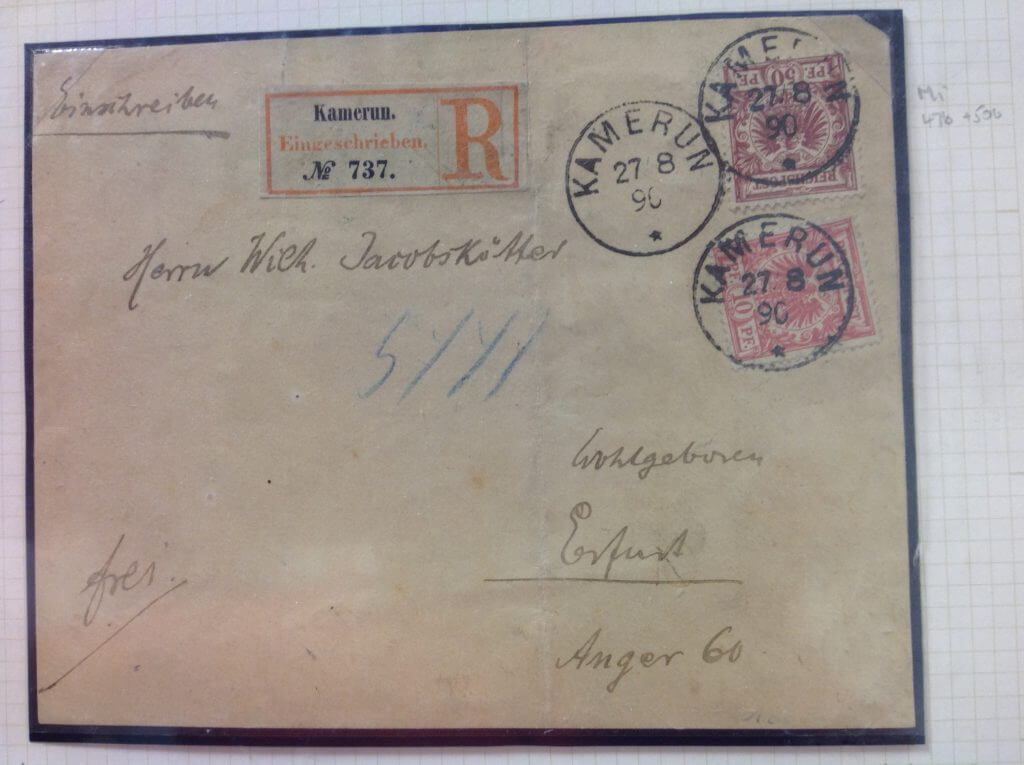 Einschreiben
Kamerun.
Eingeschrieben.
№ 737.
R
KAMERUN
27 8
90
KAMERUN
27 8
90
50 PF.
REICHSPOST
KAMERUN
27 8
90
10 PF.
Mi
Herrn Wilh. Jacobskötter
Wohlgeboren
Erfurt
frei.
Anger 60